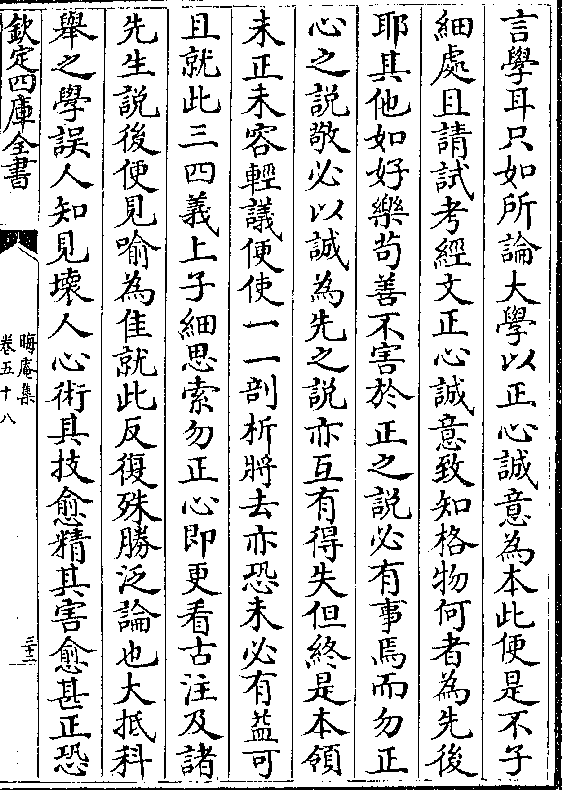 言學耳只如所論大學以正心誠意為本此便是不子
細處且請試考經文正心誠意致知格物何者為先後
耶其他如好樂茍善不害於正之說必有事焉而勿正
心之說敬必以誠為先之說亦互有得失但終是本領
未正未容輕議便使一一剖析將去亦恐未必有益可
且就此三四義上子細思索勿正心即更看古注及諸
先生說後便見喻為佳就此反復殊勝泛論也大抵科
舉之學誤人知見壊人心術其技愈精其害愈甚正恐
欽定四庫全書
晦庵集
卷五十八
三十二